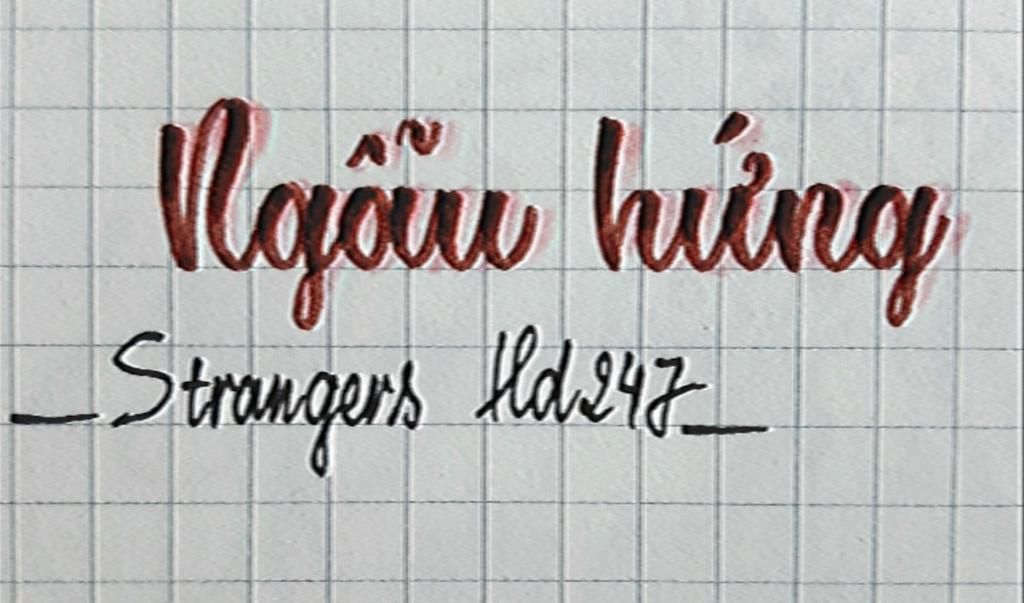 Ngẫu hứng
_Strangers Hd247_